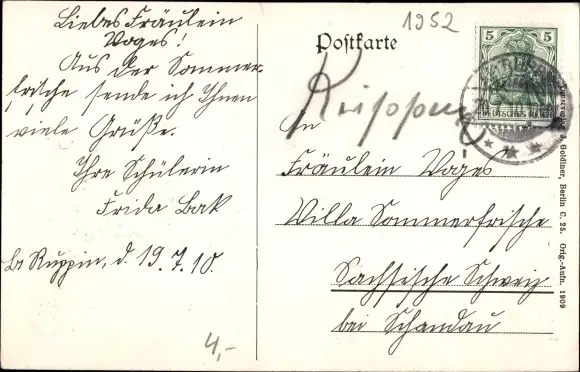 1952
Liebes Fräulein
Voges!
Aus der Sommer-
frische sende ich Ihnen
viele Grüße.
Ihre Schülerin
Frida Bak
Ruppin, d. 19.7.10.
4,-
Postkarte
5 5
DEUTSCHES REICH
An
Fräulein Voges
Villa Sommerfrische
Sächsische Schweiz
bei Schandau
J. Goldiner, Berlin C. 25. Orig.-Aufn. 1909